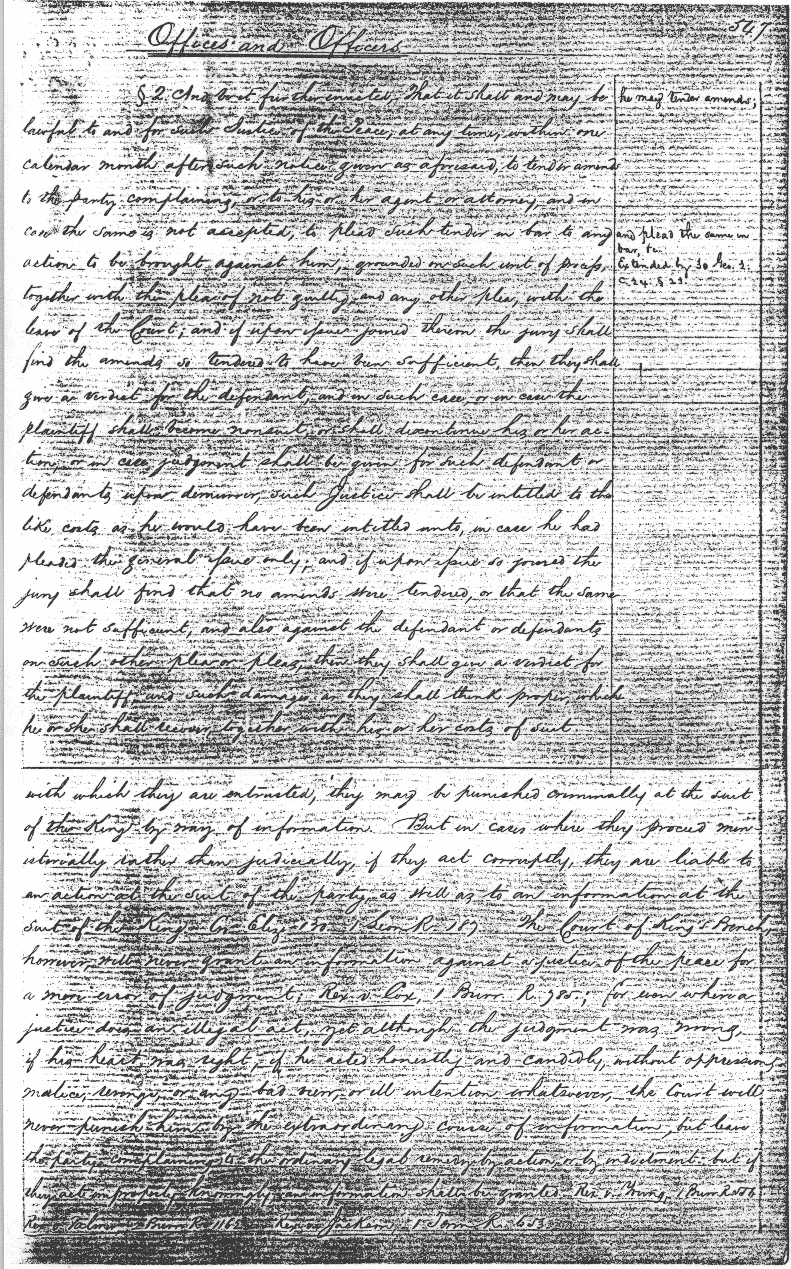 547
Offices and Officers
§ 2. And be it further enacted, That it shall and may be
lawful to and for such Justice of the Peace, at any time, within one
calendar month after such notice given as aforesaid, to tender amends
to the party complaining, or to his or her agent or attorney, and in
case the same is not accepted, to plead such tender in bar to any
action to be brought against him, grounded on such writ of process,
together with the plea of not guilty, and any other plea, with the
leave of the Court; and if upon issue joined thereon the jury shall
find the amends so tendered to have been sufficient, then they shall
give a verdict for the defendant, and in such case, or in case the
plaintiff shall become nonsuit, or shall discontinue his or her ac-
tion, or in case judgment shall be given for such defendant or
defendants upon demurrer, such Justice shall be intitled to the
like costs as he would have been intitled unto, in case he had
pleaded the general issue only; and if upon issue so joined the
jury shall find that no amends were tendered, or that the same
were not sufficient, and also against the defendant or defendants
on such other plea or pleas, then they shall give a verdict for
the plaintiff and such damages as they shall think proper, which
he or she shall recover, together with his or her costs of suit
he may tender amends;
and plead the same in
bar, &c.
Extended by
c. 24. § 29.
with which they are entrusted, they may be punished criminally at the suit
of the King by way of information. But in cases where they proceed min-
isterially rather than judicially, if they act corruptly, they are liable to
an action at the suit of the party, as well as to an information at the
suit of the King. Cro. Eliz. 130. 1 Leon R. 187. The Court of King's Bench,
however, will never grant an information against a justice of the peace for
a mere error of judgment; Rex. v. Cox, 1 Burr. R. 785.; for even where a
justice does an illegal act, yet although the judgment was wrong,
if his heart was right, if he acted honestly and candidly, without oppression,
malice, revenge, or any bad view, or ill intention whatsoever, the Court will
never punish him by the extraordinary course of information, but leave
the party complaining to the ordinary legal remedy by action or by indictment; but if
they act improperly knowingly, an information shall be granted. Rex. v. Young, 1 Burr R. 556
Rex v. Palmer 2 Burr R. 1162. Rex v. 1 Term R. 653